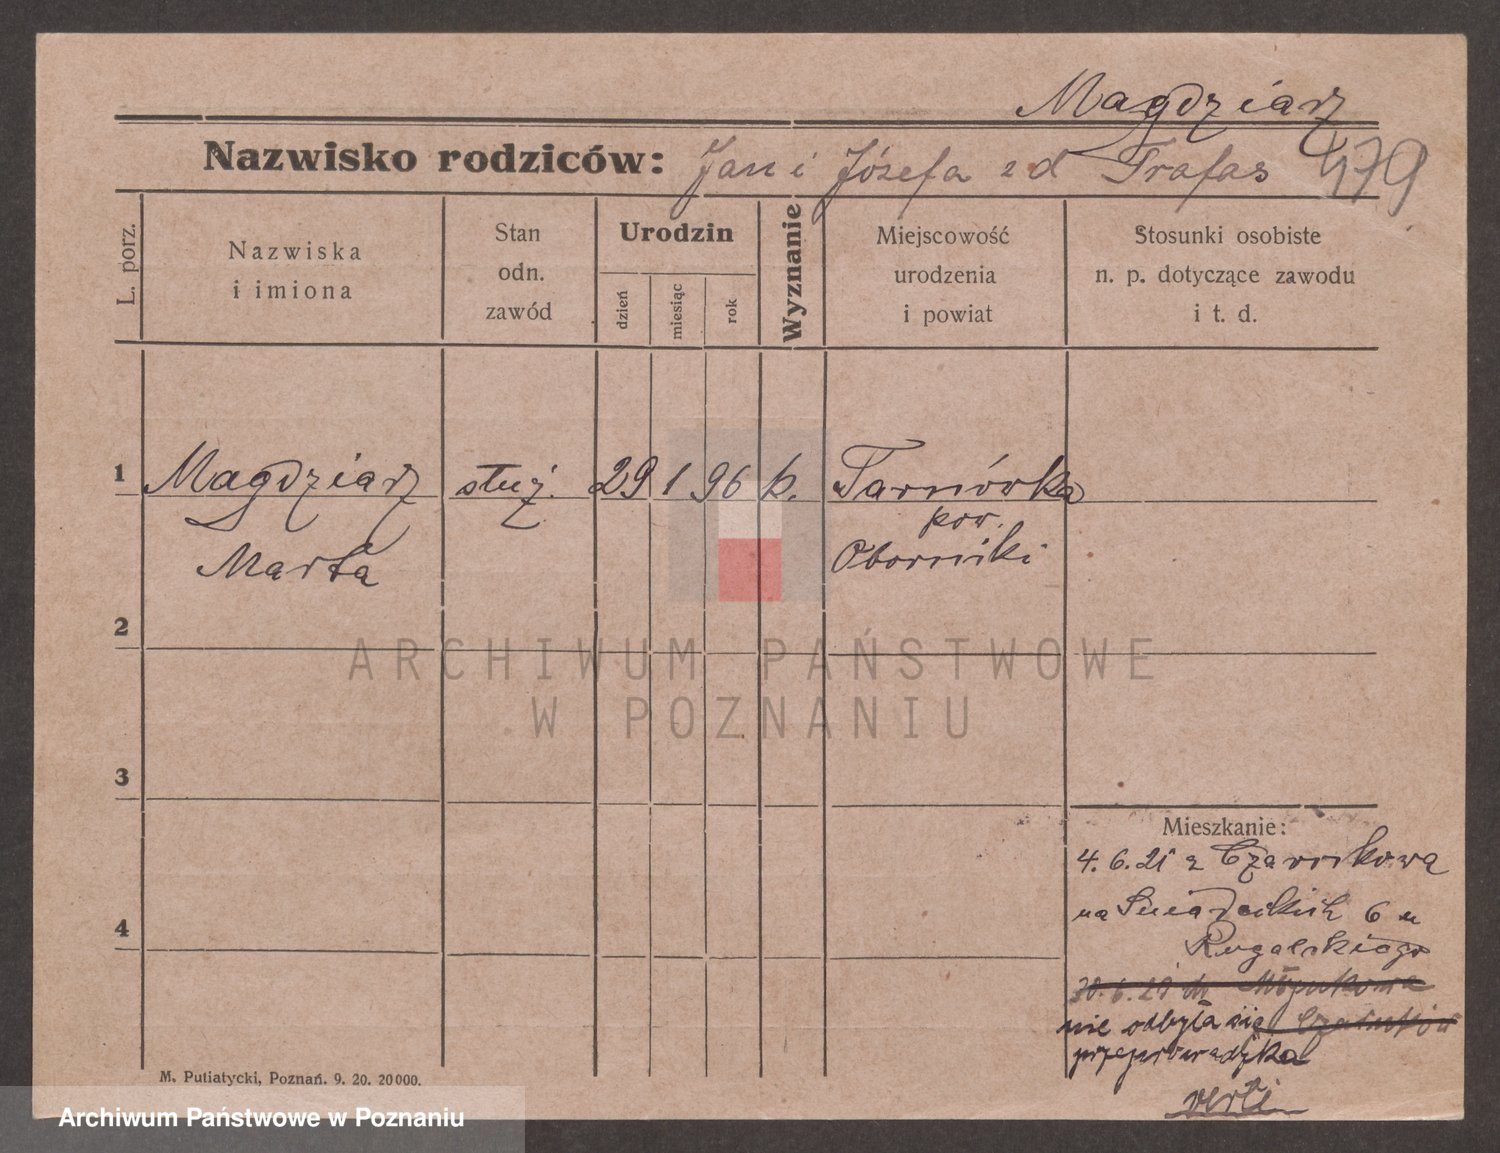 Magdziarz
Nazwisko rodziców: Jan i Józefa z d Trafas 479
L. porz.
Nazwiska
i imiona
Stan
odn.
zawód
Urodzin
dzień
miesiąc
rok
Wyznanie
Miejscowość
urodzenia
i powiat
Stosunki osobiste
n. p. dotyczące zawodu
i t. d.
1 Magdziarz służ. 29 1 96 k. Tarnówka
pow.
Marta Oborniki
2
ARCHIWUM PAŃSTWOWE
W POZNANIU
3
Mieszkanie:
4. 6. 21 z Czarnkowa
na Śniadeckich 6 u
4
Rugalskiego
30. 6. 21
nie odbyła się
przeprowadzka
verte
M. Putiatycki, Poznań. 9. 20. 20000.
Archiwum Państwowe w Poznaniu